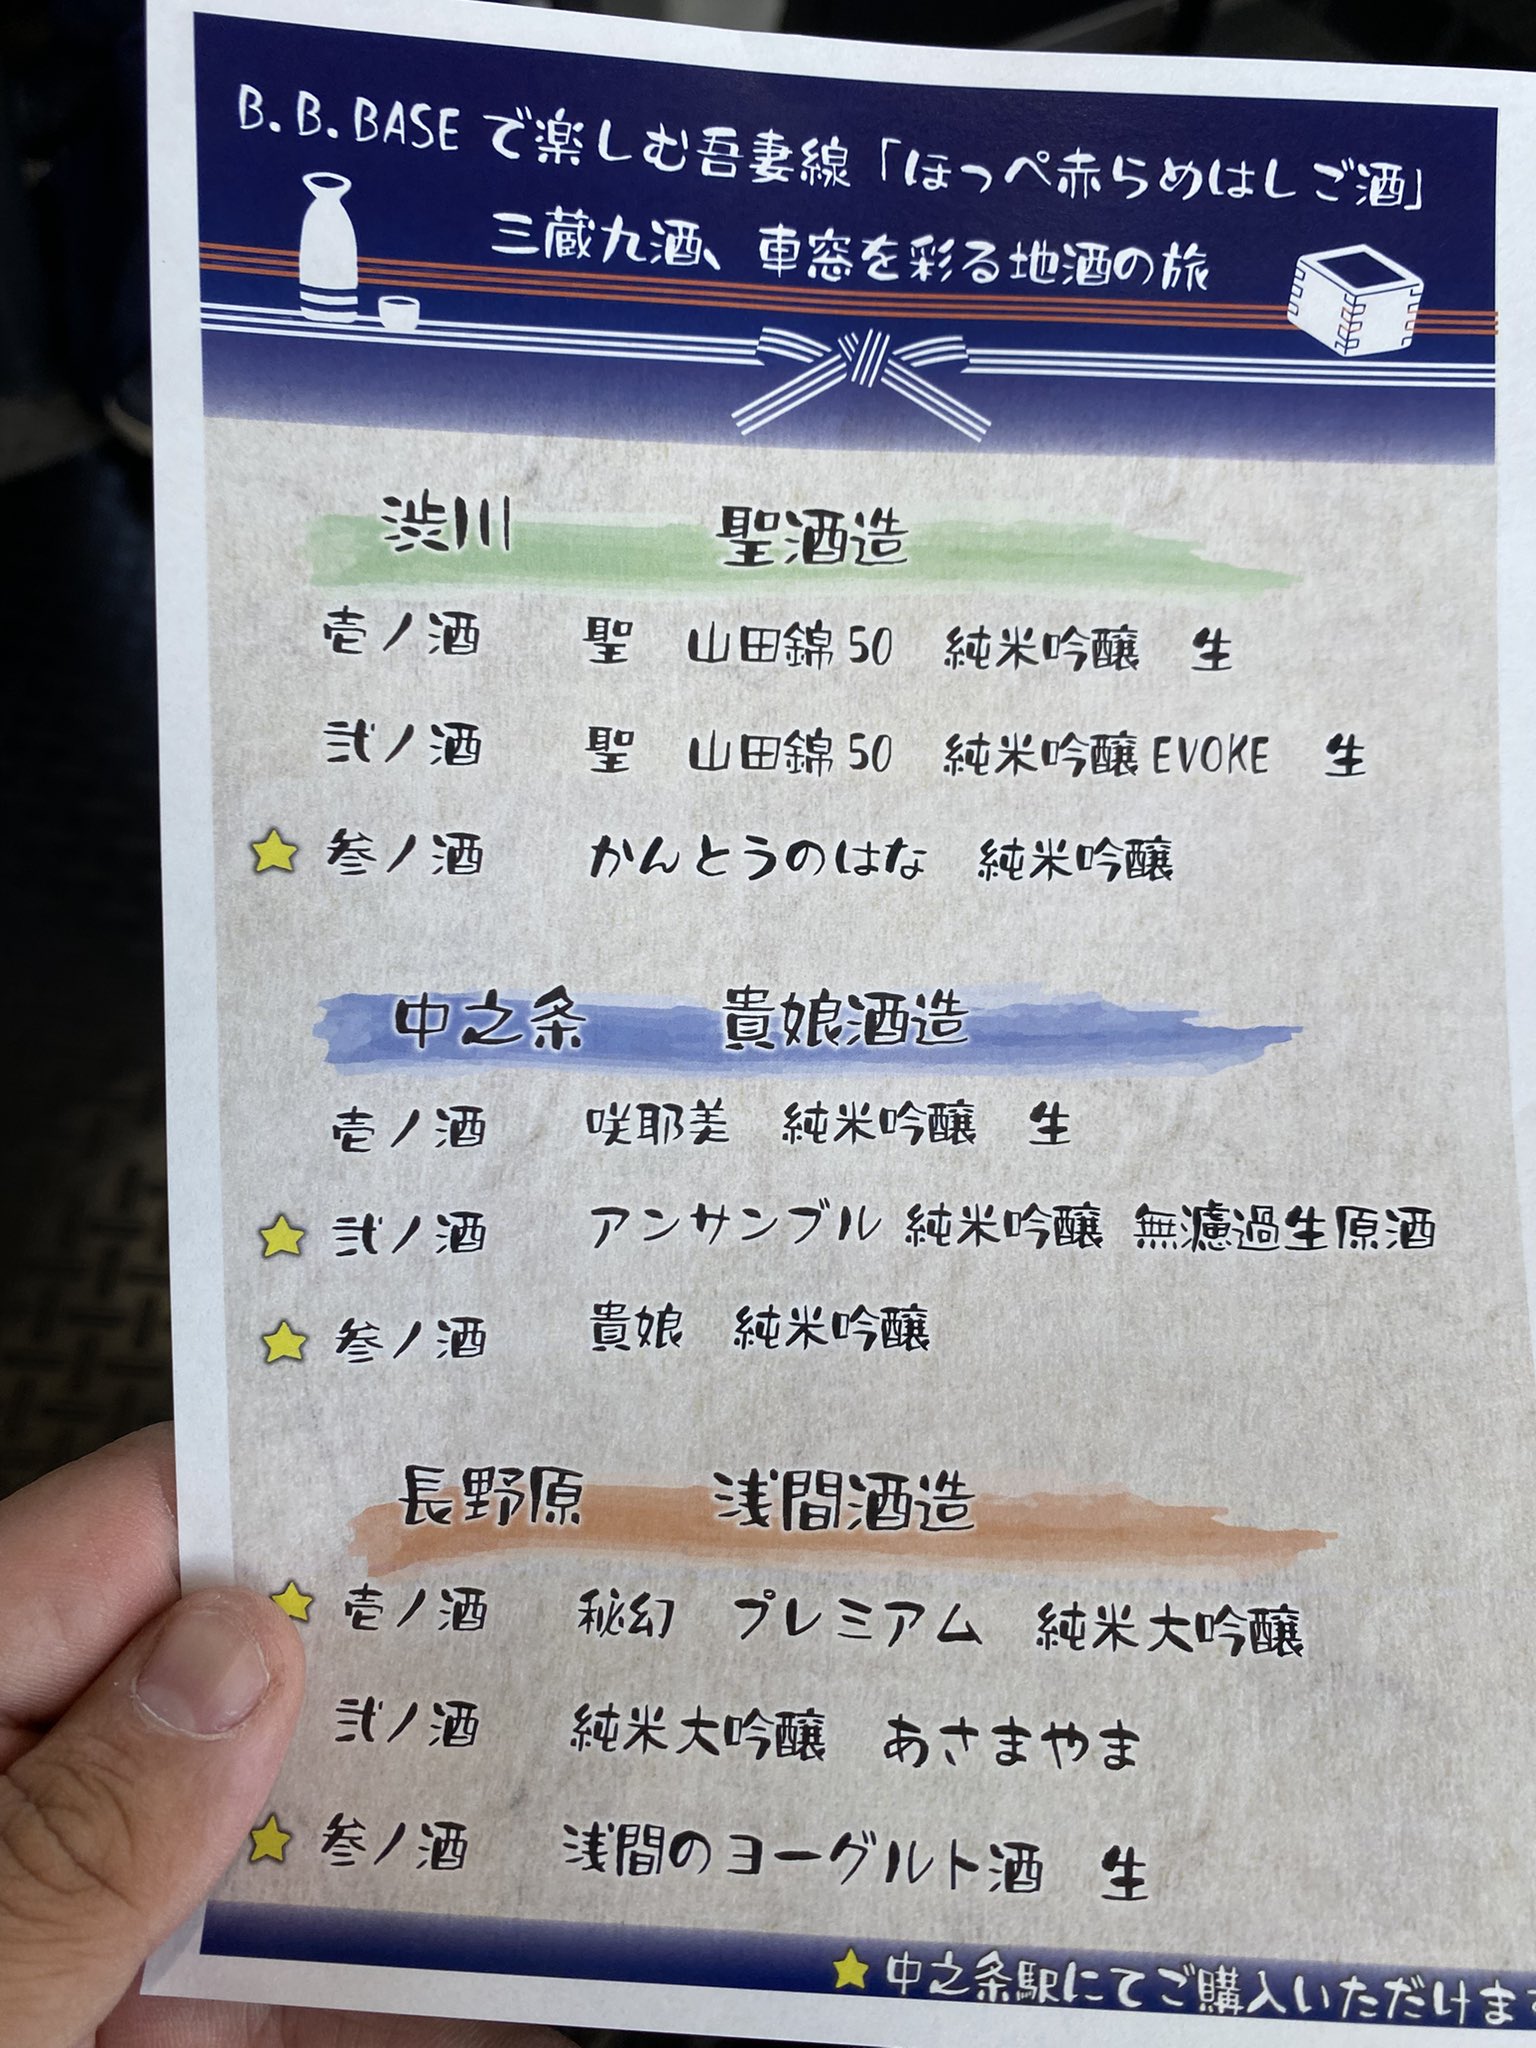 B.B.BASEで楽しむ吾妻線「ほっぺ赤らめはしご酒」
三蔵九酒、車窓を彩る地酒の旅
渋川 聖酒造
壱ノ酒 聖 山田錦50 純米吟醸 生
弐ノ酒 聖 山田錦50 純米吟醸EVOKE 生
★ 参ノ酒 かんとうのはな 純米吟醸
中之条 貴娘酒造
壱ノ酒 咲耶美 純米吟醸 生
★ 弐ノ酒 アンサンブル 純米吟醸 無濾過生原酒
★ 参ノ酒 貴娘 純米吟醸
長野原 浅間酒造
★ 壱ノ酒 秘幻 プレミアム 純米大吟醸
弐ノ酒 純米大吟醸 あさまやま
★ 参ノ酒 浅間のヨーグルト酒 生
★中之条駅にてご購入いただけます